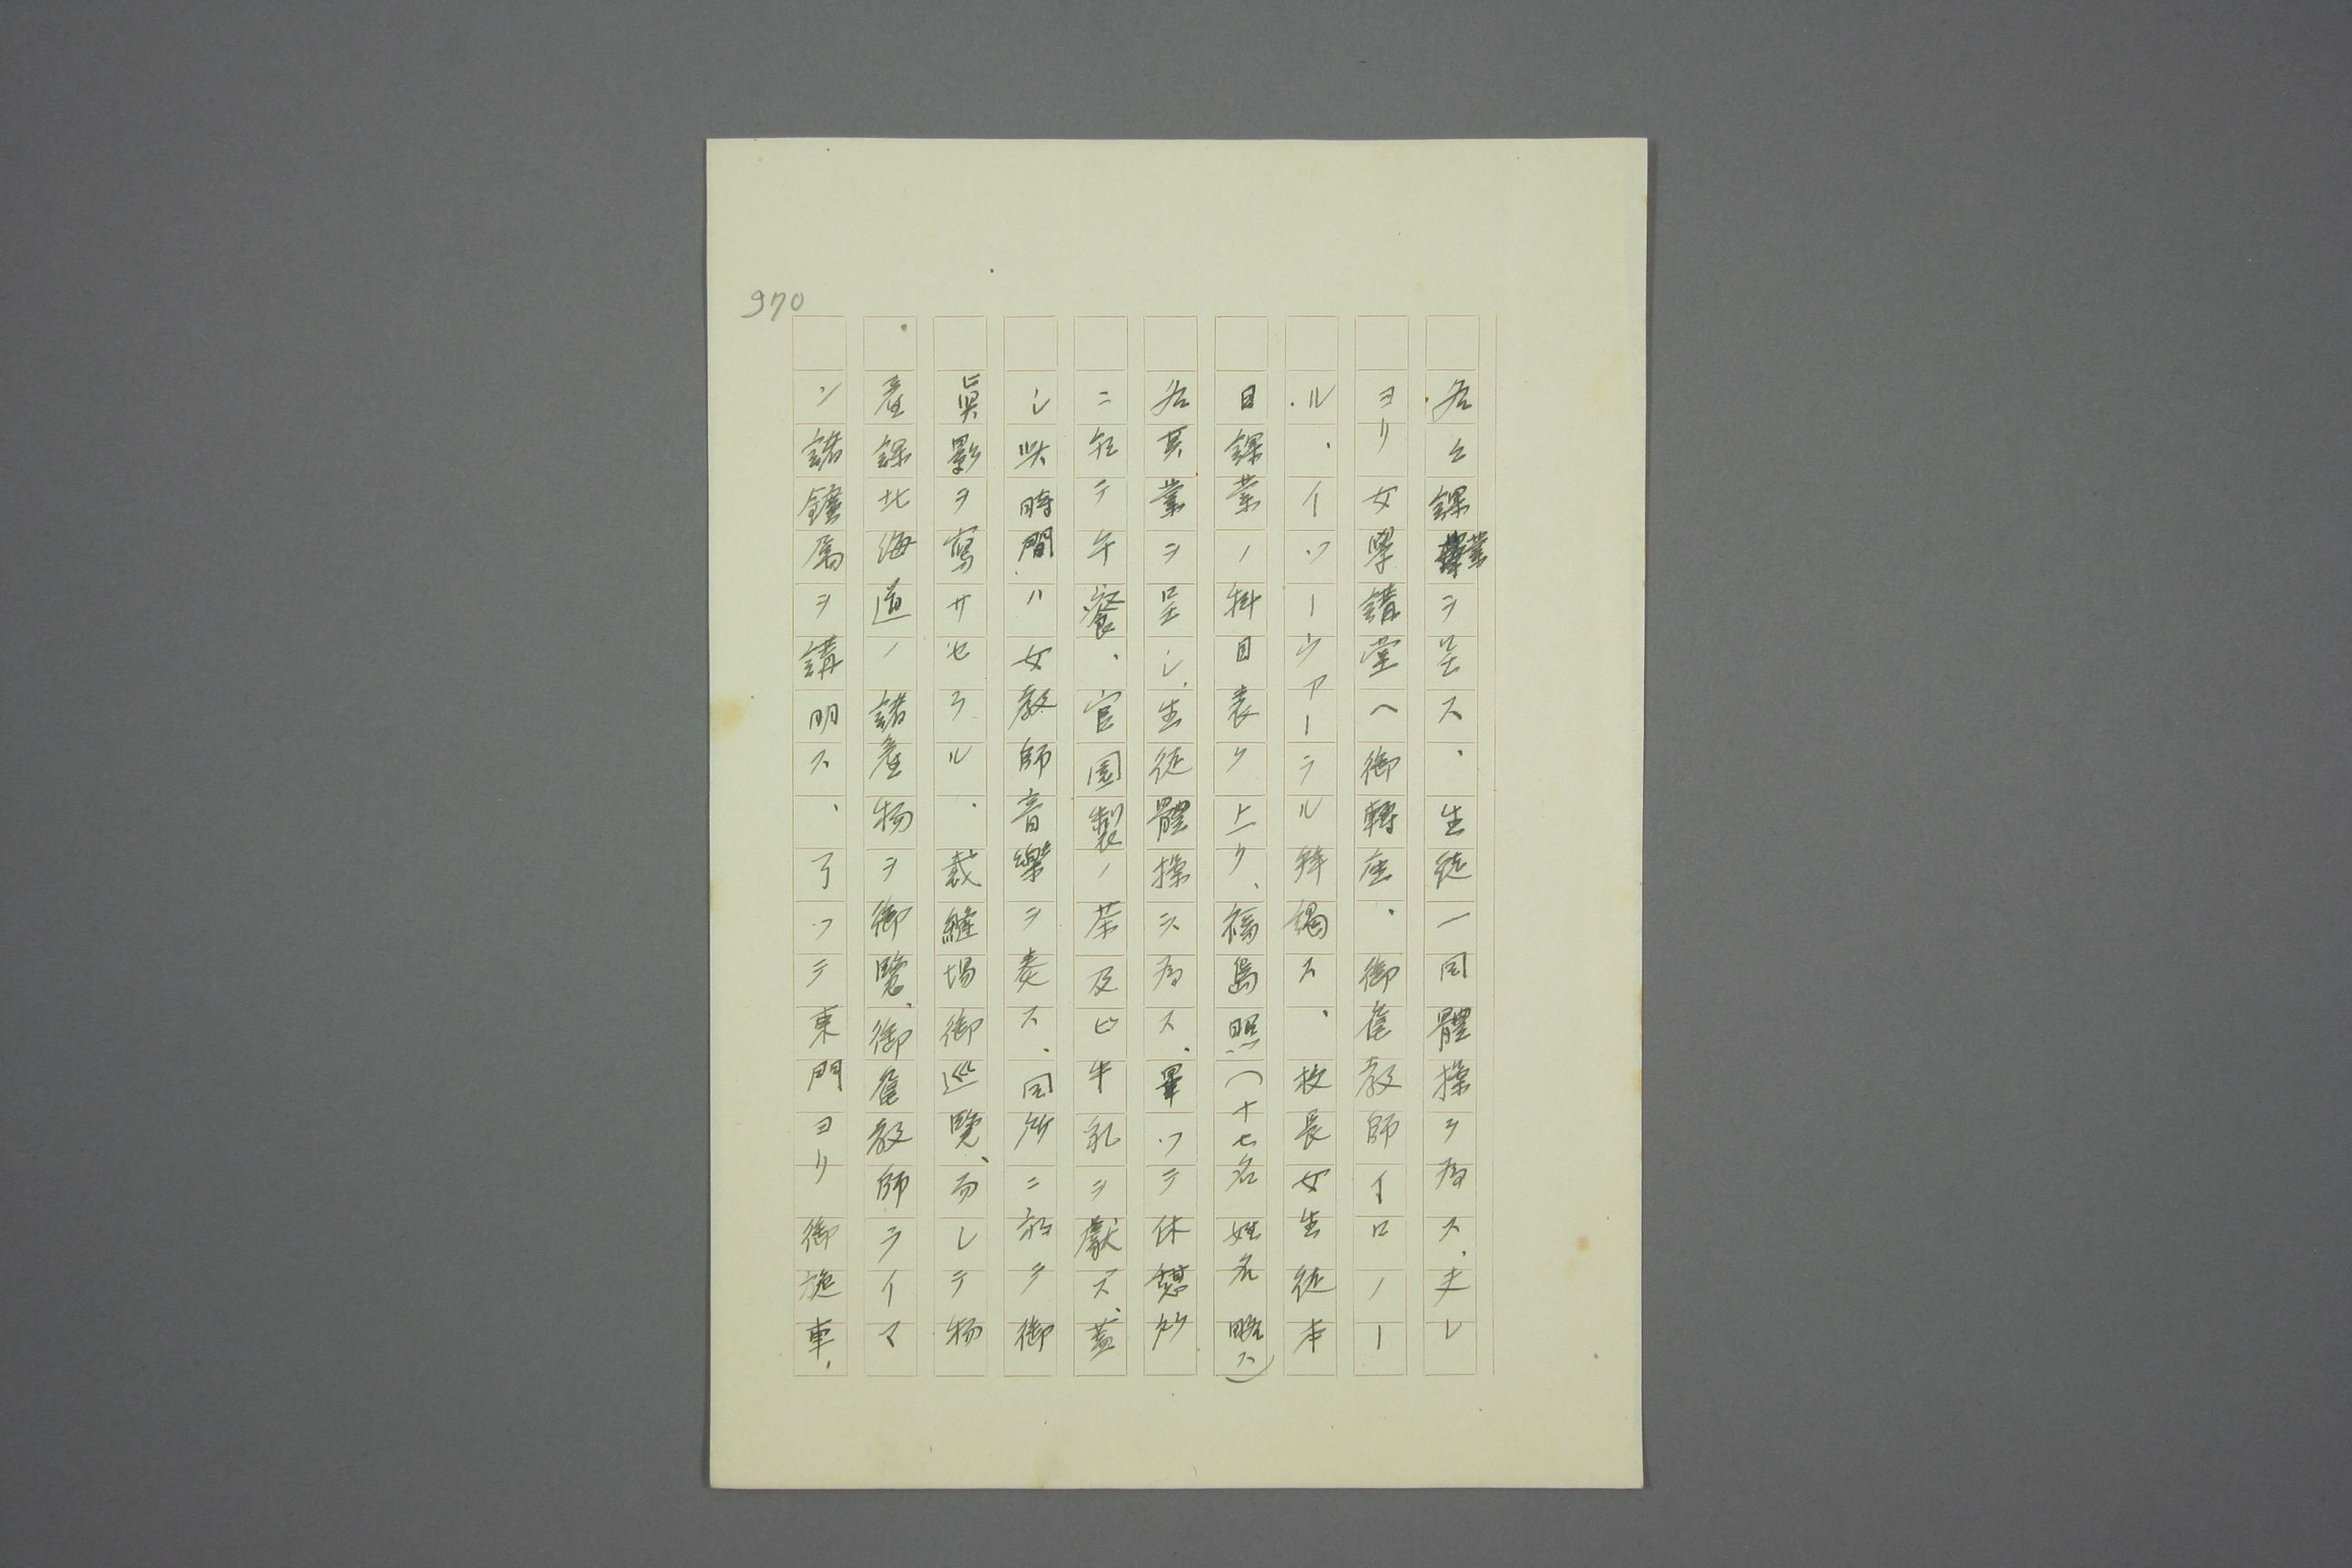 970
各々課業ヲ呈ス、生徒一同體操ヲ為ス、夫レ
ヨリ女學講堂ヘ御轉座、御雇教師イロノー
ル、イツーウアーラル拜謁ス、校長女生徒本
日課業ノ科目表ヲ上リ、福島照(十七名姓名略ス)
各其業ヲ呈シ、生徒體操ヲ為ス、畢ツテ休憩所
ニ於テ午餐、官園製ノ茶及ビ牛乳ヲ獻ズ、蓋
シ此時間ハ女教師音樂ヲ奏ス、同所ニ於テ御
眞影ヲ寫サセラル、裁縫場御巡覽、而シテ物
產課北海道ノ諸產物ヲ御覽、御雇教師ライマ
ン諸鑛属ヲ講明ス、了ツテ東門ヨリ御旋車、